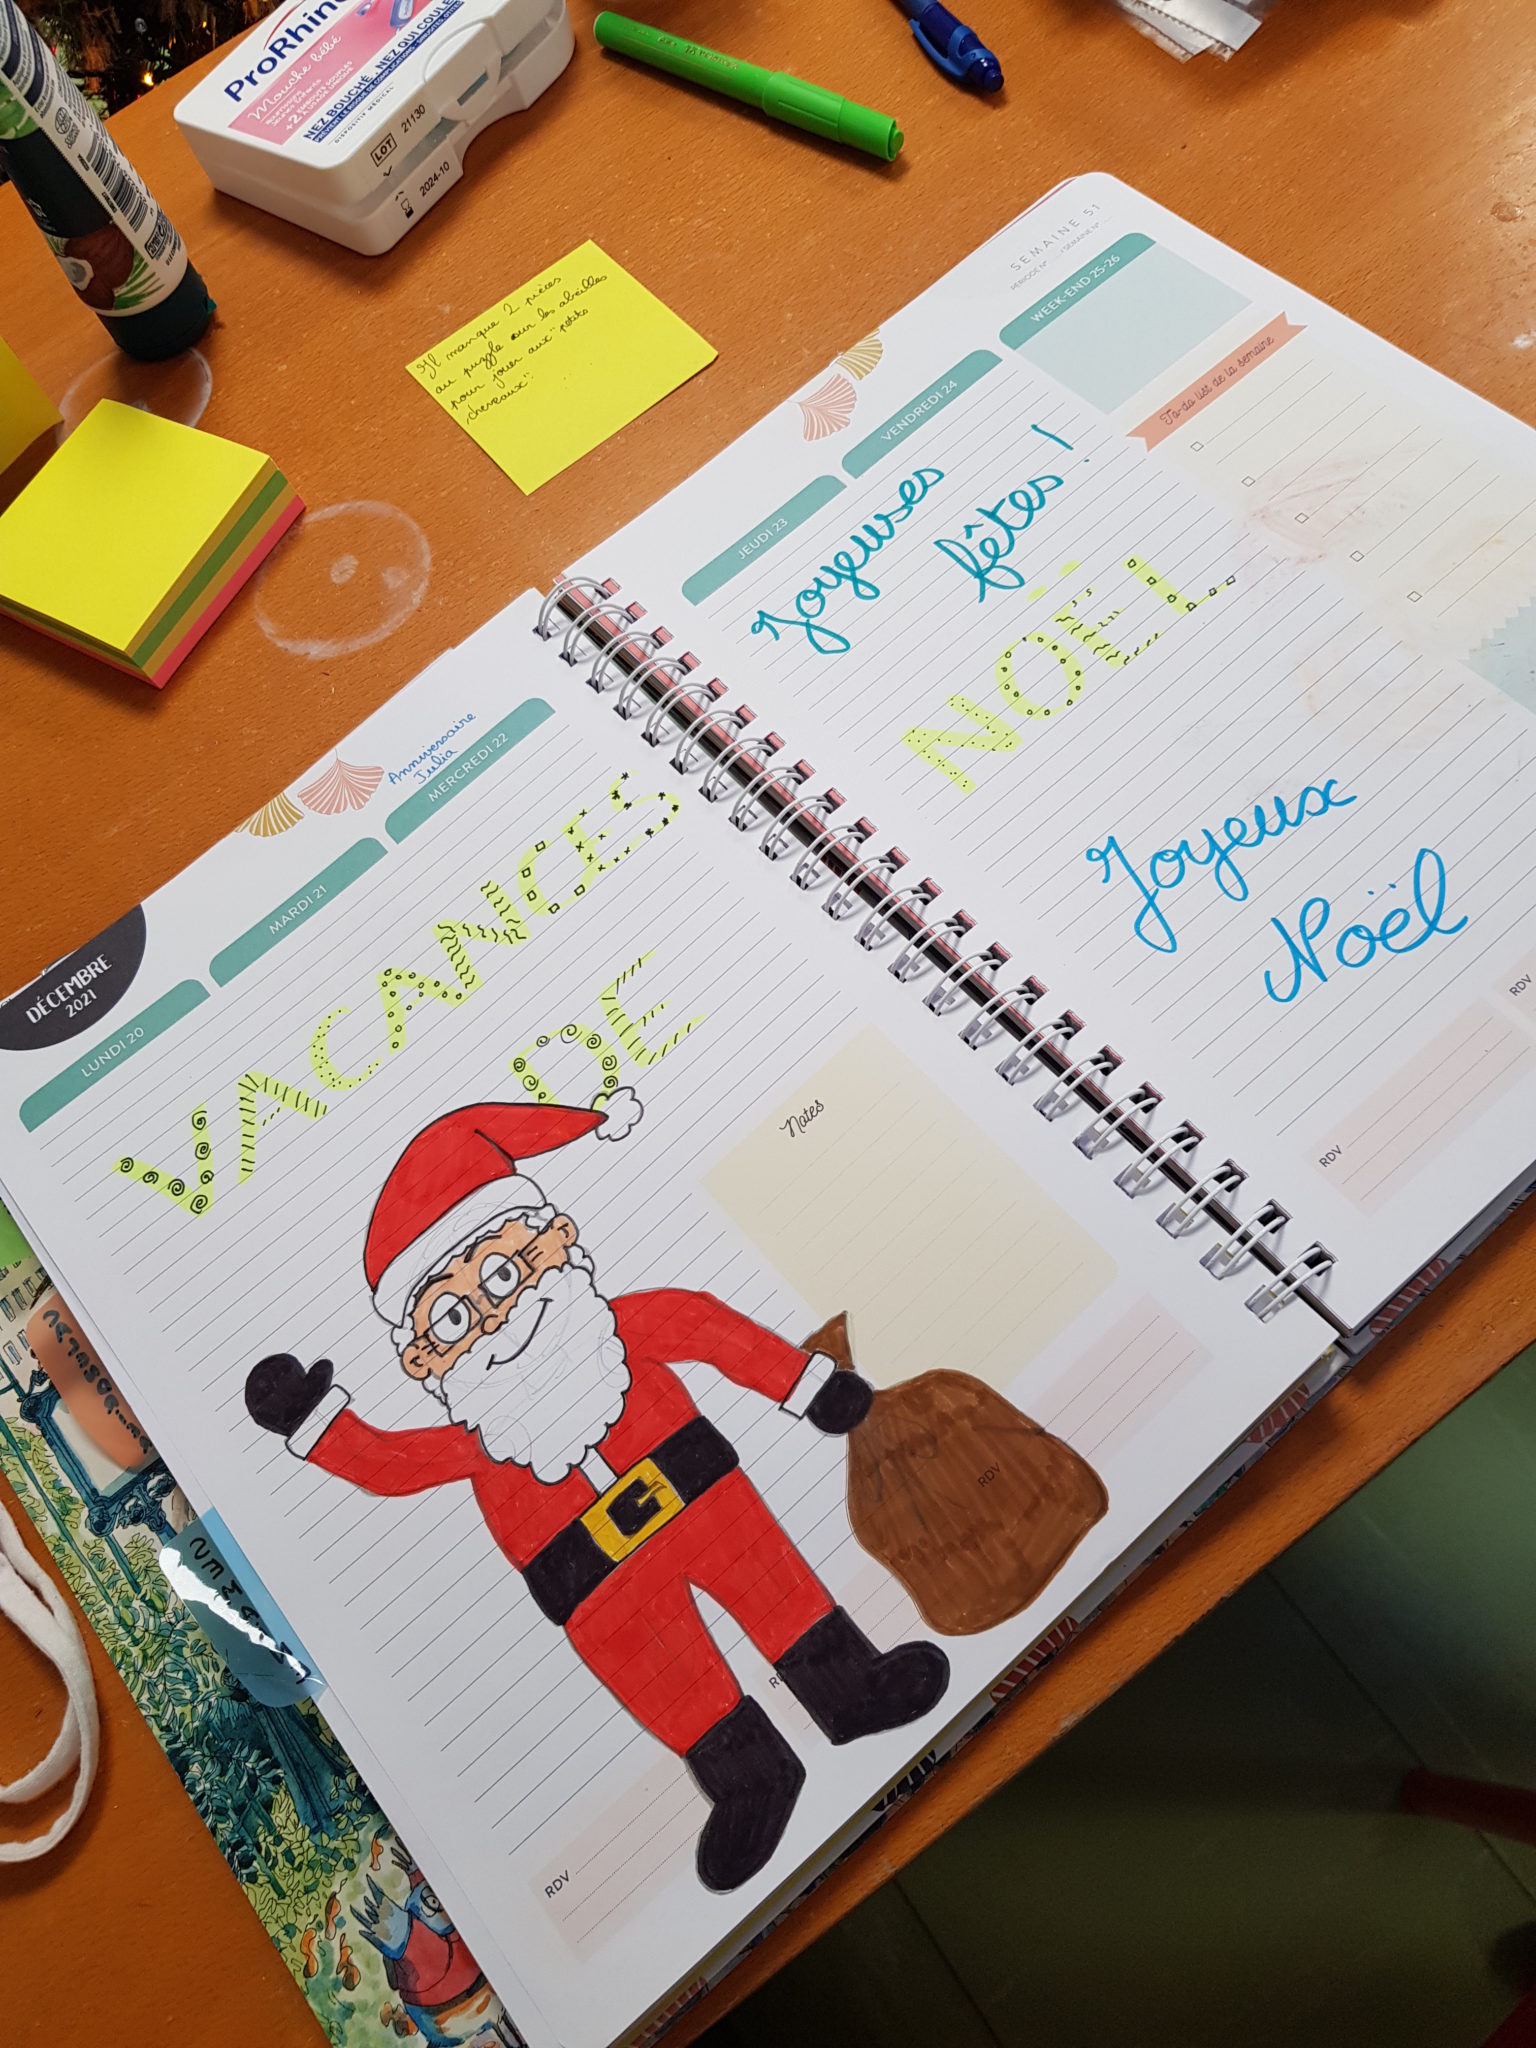 ProRhinel
Mouche bébé
+2 EMBOUTS SOUPLES
À USAGE UNIQUE
NEZ BOUCHÉ, NEZ QUI COULE
DISPOSITIF MÉDICAL
LOT 21130
2024-10
Il manque 2 pièces
au puzzle sur les abeilles
pour jouer aux "petits
chevaux"
DÉCEMBRE
2021
LUNDI 20
MARDI 21
Anniversaire
Julia
MERCREDI 22
VACANCES
DE
Notes
G
RDV
RDV
RDV
SEMAINE 51
PÉRIODE N° / SEMAINE N°
JEUDI 23
VENDREDI 24
WEEK-END 25-26
To-do list de la semaine
Joyeuses
fêtes !
NOËL
Joyeux
Noël
RDV
RDV